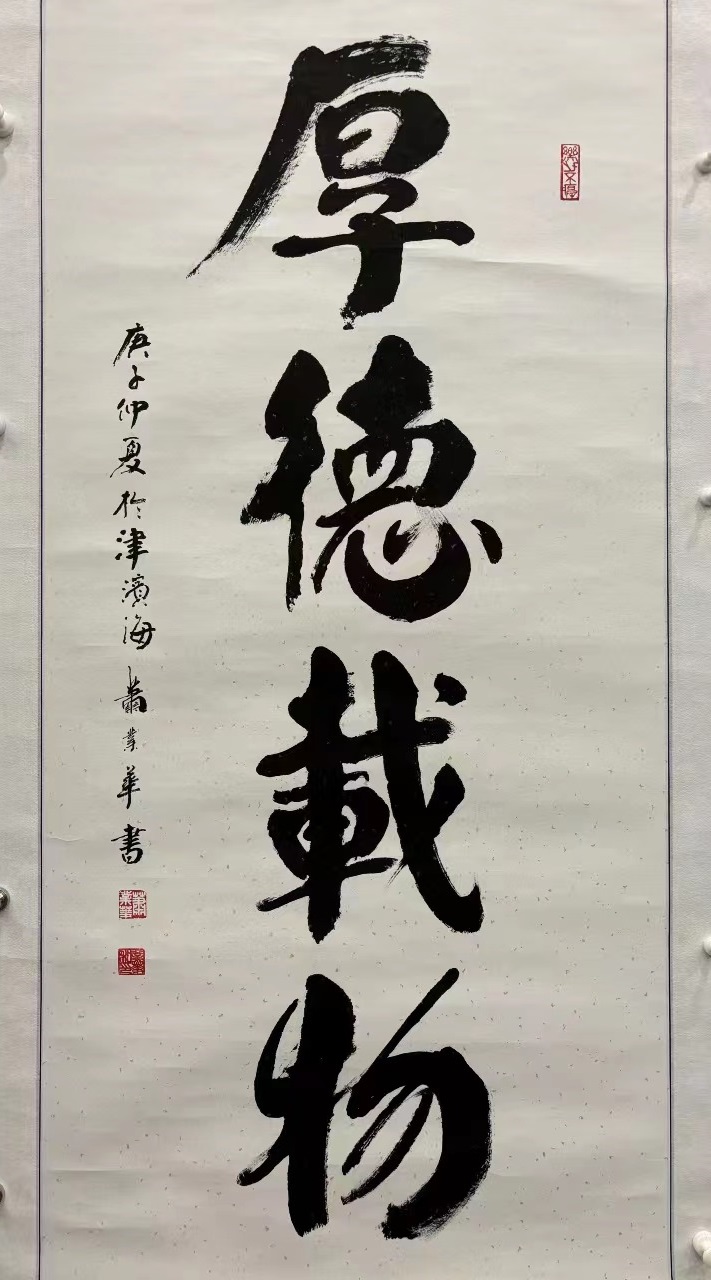 厚德載物
庚子仲夏於津濱海蕭業華書
蕭業華